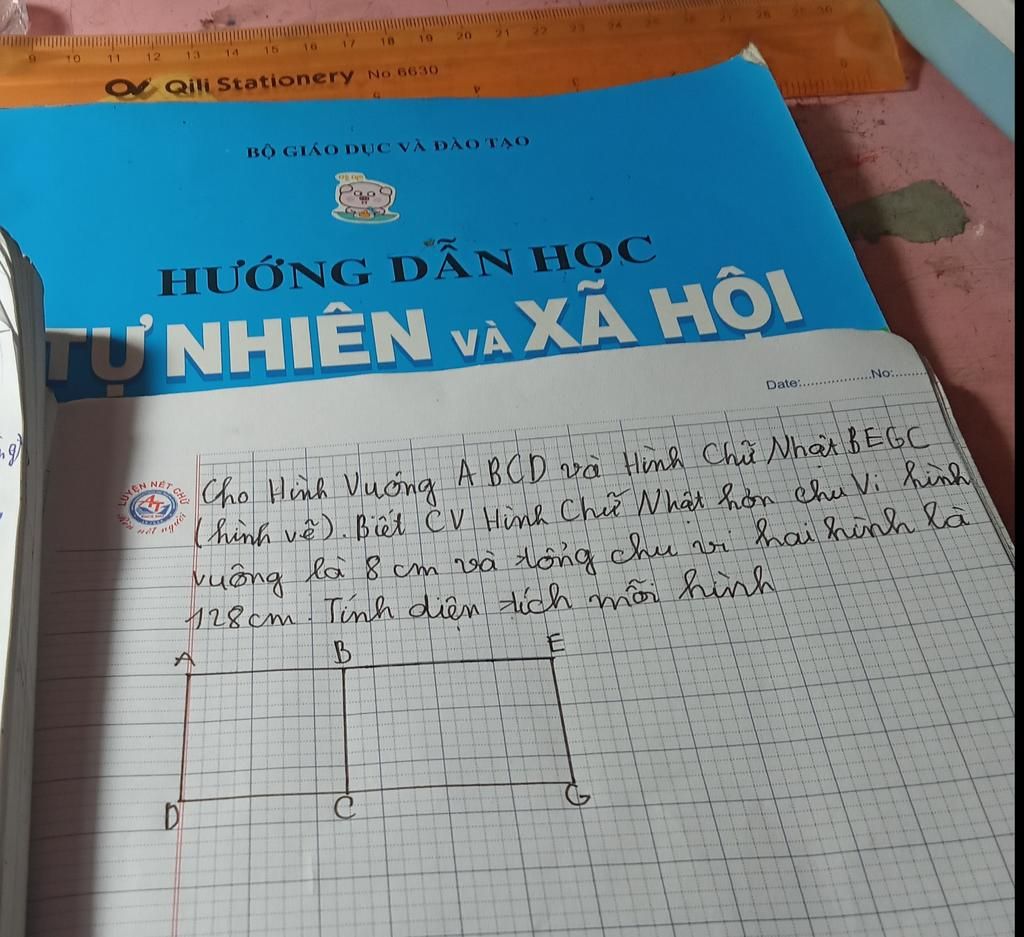 9 10 11 12 13 14 15 16 17 18 19 20 21 22 23 24 25 26 28 29 30
Qili Stationery No 6630
BỘ GIÁO DỤC VÀ ĐÀO TẠO
HƯỚNG DẪN HỌC
TỰ NHIÊN VÀ XÃ HỘI
Date: No:
LUYỆN NÉT CHỮ
AT
nét người
Cho Hình Vuông ABCD và Hình Chữ Nhật BEGC
(hình vẽ). Biết CV Hình Chữ Nhật hơn chu Vi hình
vuông là 8 cm và tổng chu vi hai hình là
128cm. Tính diện tích mỗi hình
A B E
D C G